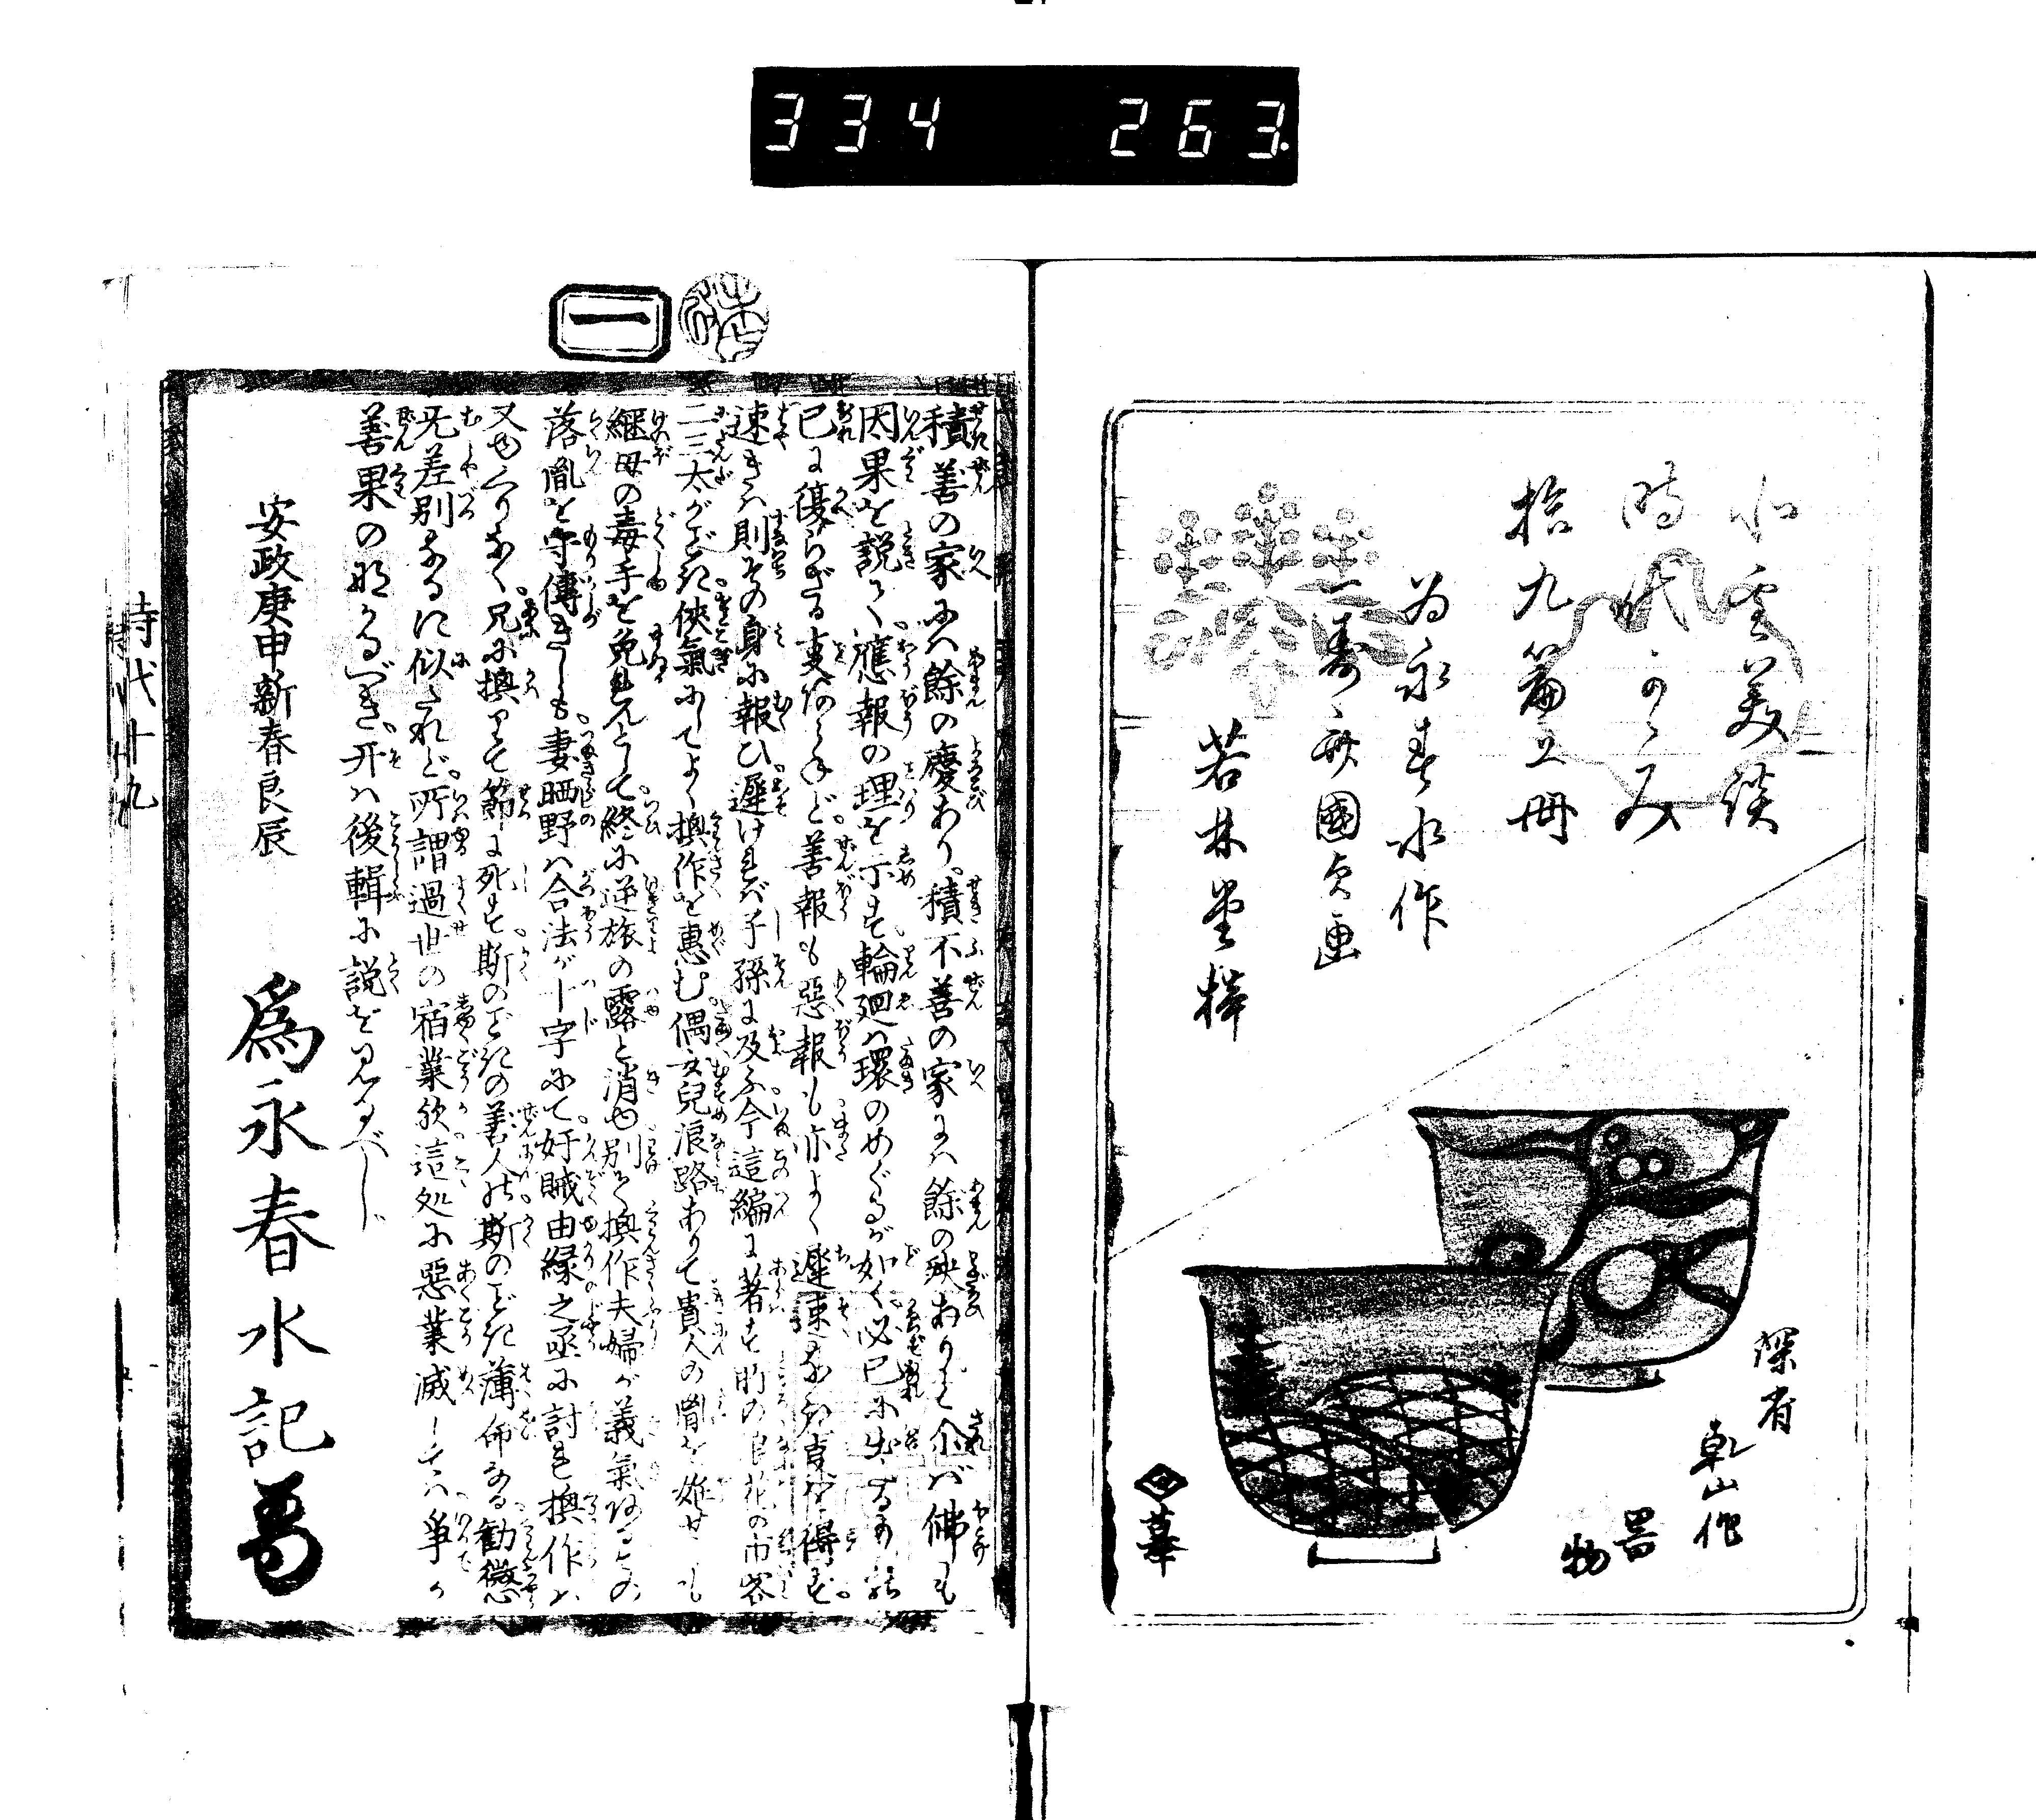 334 263
北雪美談
時代かゝみ
拾九篇上冊
為永春水作
一壽齋國貞画
若林堂梓
深省
乾山作
器
物
一
積善の家にハ餘の慶あり。積不善の家にハ餘の殃ありと。介バ佛も
因果を説て。應報の理を示す。輪廻ハ環のめぐるが如く。必己に出るあ
己に復らざる事なけれど。善報も惡報も。亦よく遲速
速きハ則その身に報ひ。遲ければ子孫に及ふ。今這編に著す所の
二三太がごとき。侠氣にしてよく換作を惠む。偶女兒浪路ありて。貴人の胤を姙せしも
継母の毒手を免れんとして。終に逆旅の露と消ゆ。別て換作夫婦が義氣ある
落胤を守傳きしも。妻晒野ハ合法が十字にて。奸賊由縁之丞に討れ。換作ハ
又ゆくりなく。兄に換りて節に死す。斯のごときの善人
无差別なるに似たれど。所謂過世の宿業欤。這処に惡業滅しては。爭か
善果のなかるべき。开ハ後輯に説を見るべし
安政庚申新春良辰
爲永春水記
時代十九